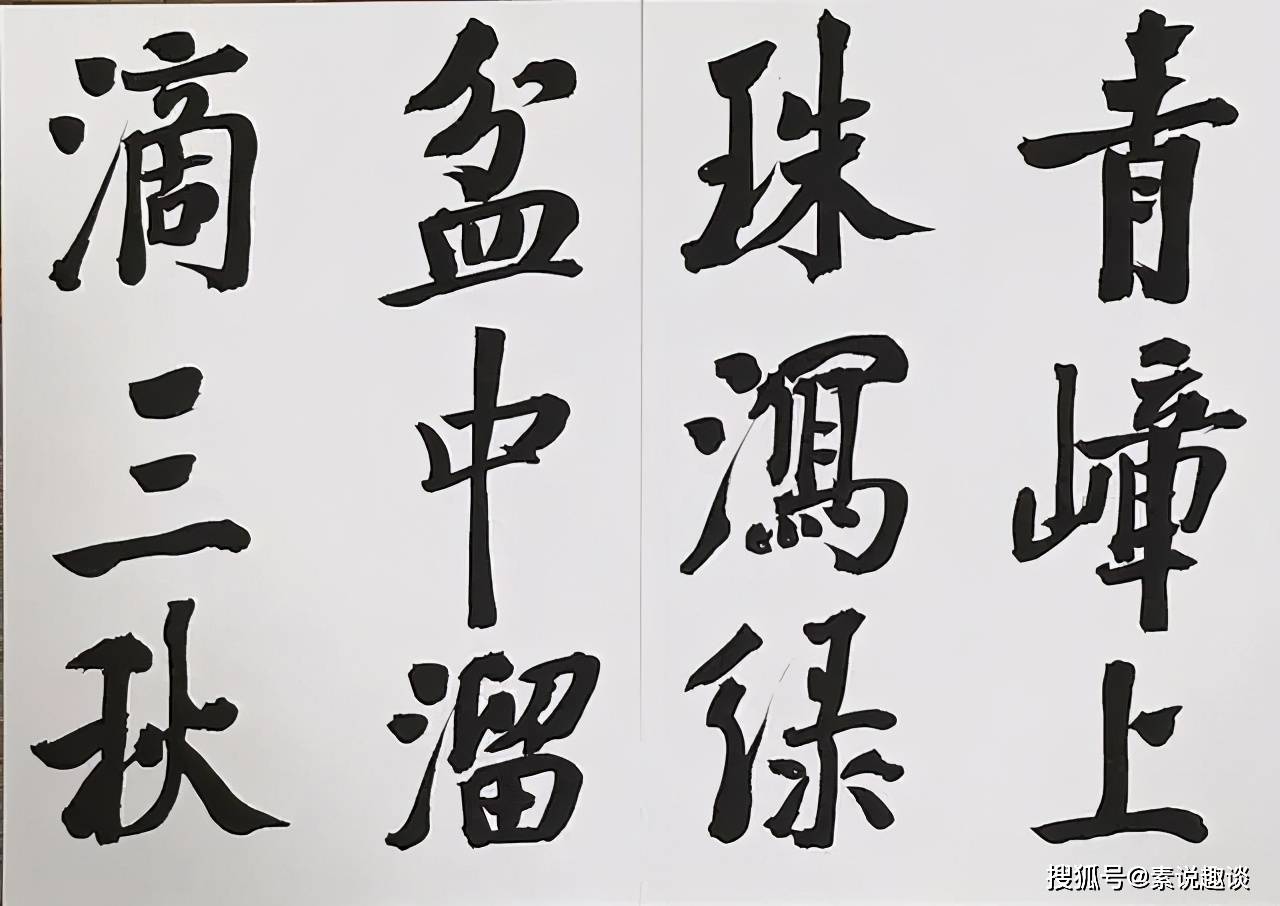 青嶂上
珠瀉绿
盆中溜
滴三秋
搜狐号@素说趣谈